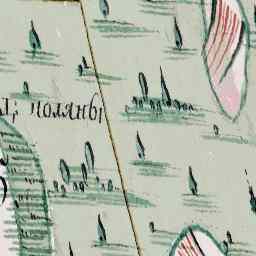 поляны